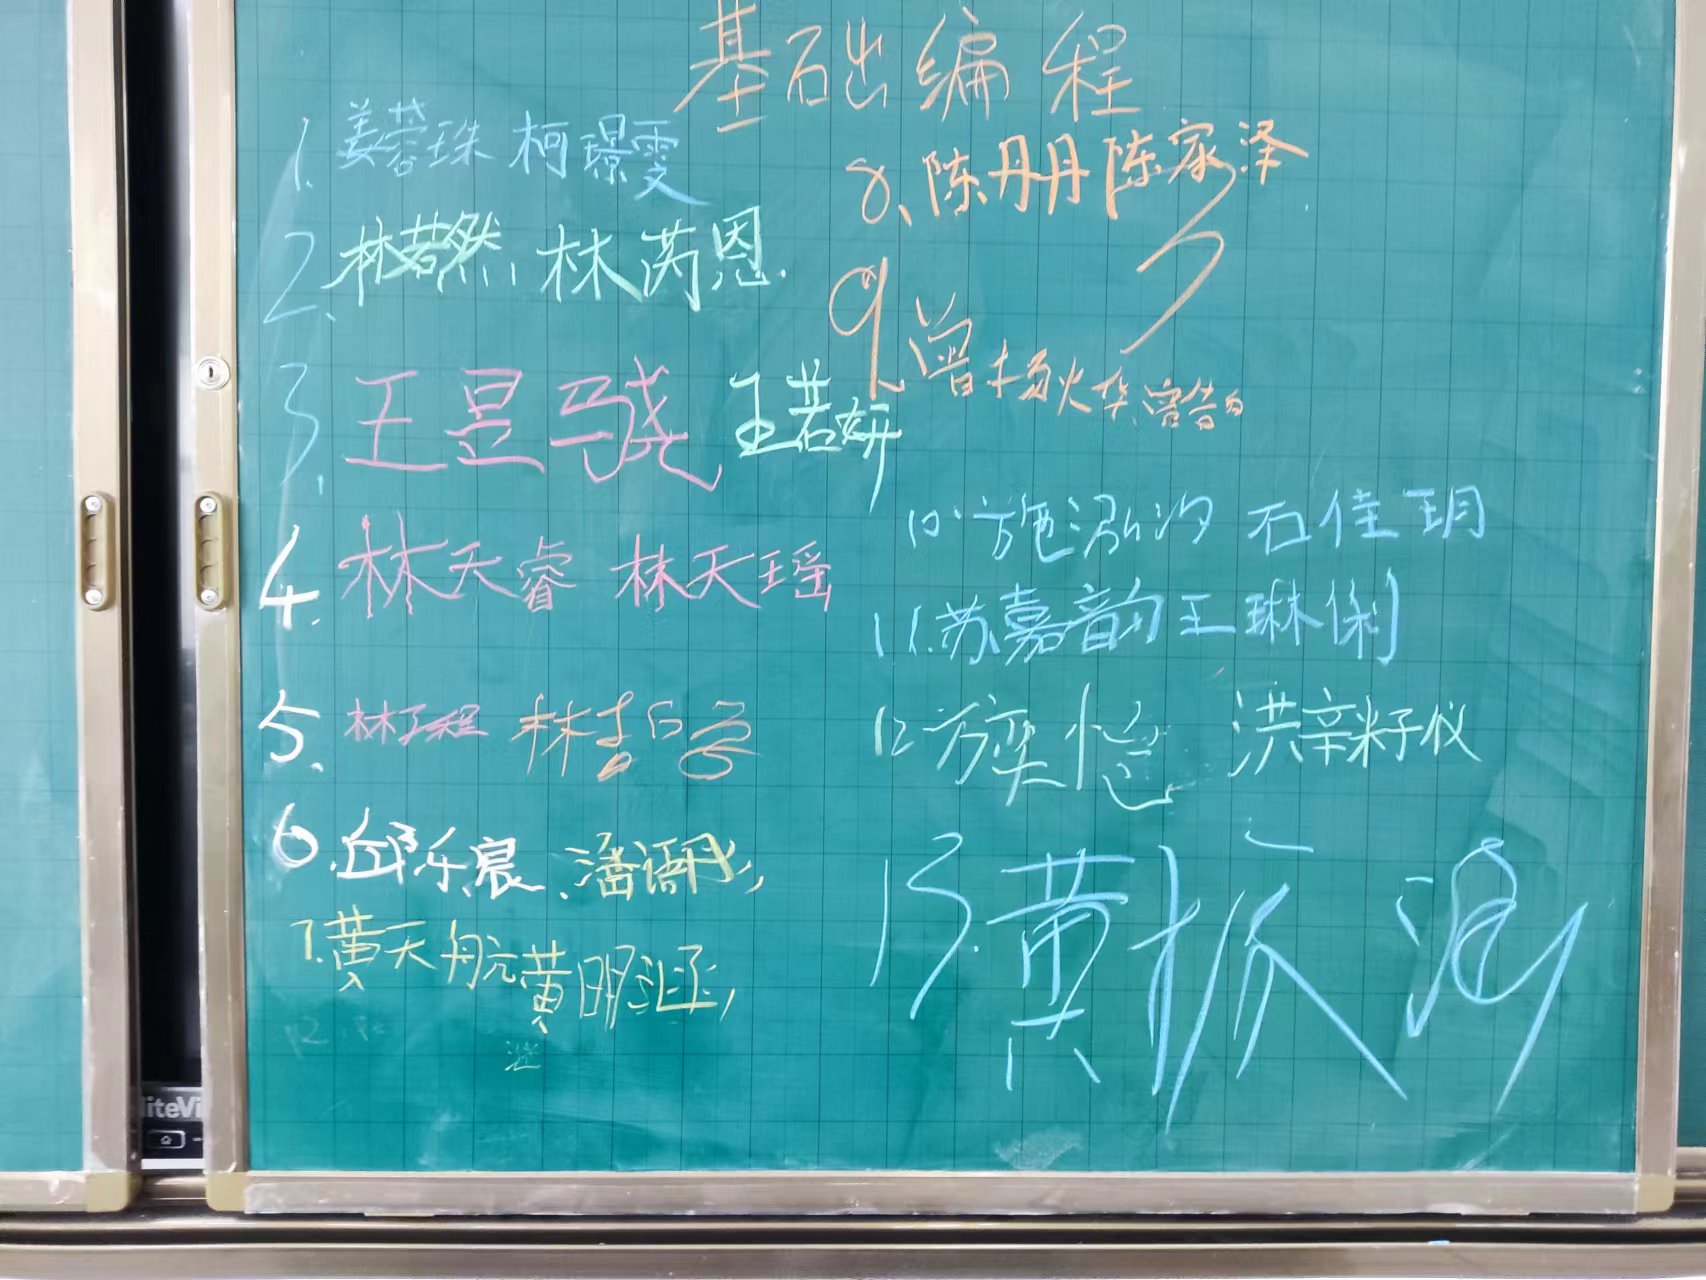 基础编程
1. 姜蓉珠 柯璟雯
2. 林若然 林芮恩
3. 王昱骁 王若妍
4. 林天睿 林天瑶
5. 林工程 林
6. 邱乐宸 潘语彤
7. 黄天航 黄明
8、陈丹丹 陈家泽
9、曾扬火华
10. 施泓汐 石佳玥
11. 苏嘉韵 王琳俐
12 方奕 洪辛籽仪
13. 黄
iteVi